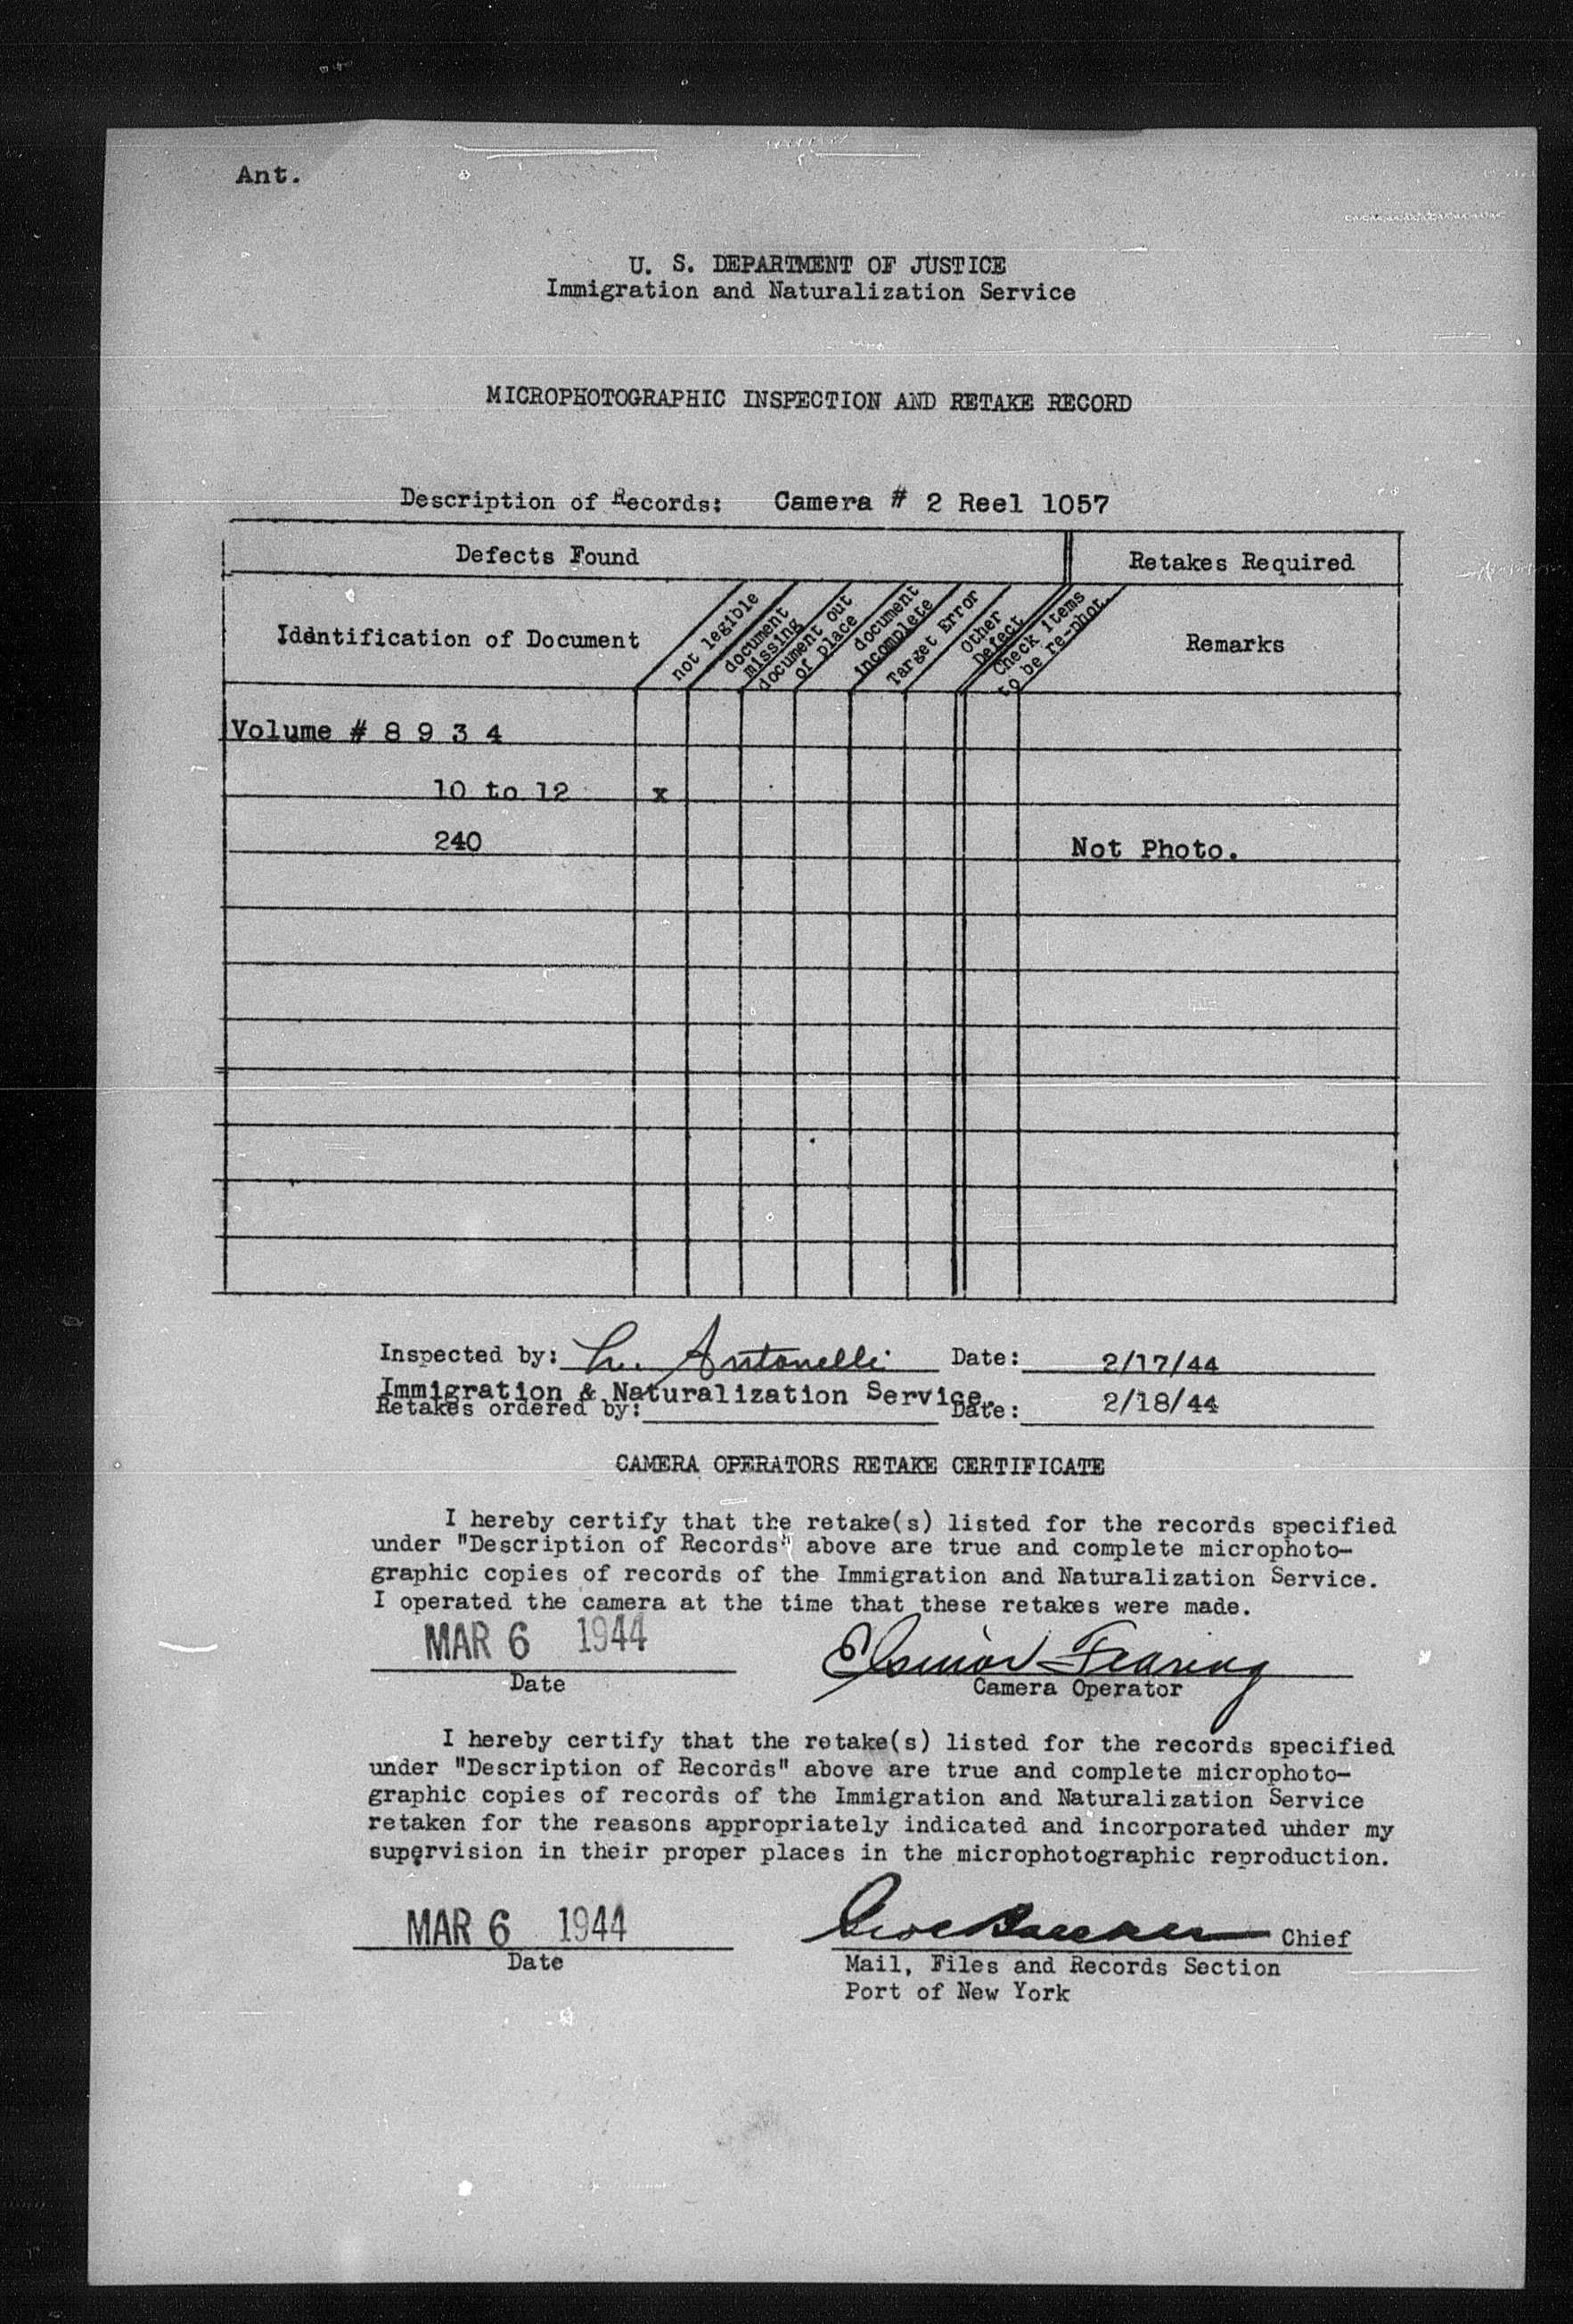 Ant.
U. S. DEPARTMENT OF JUSTICE
Immigration and Naturalization Service
MICROPHOTOGRAPHIC INSPECTION AND RETAKE RECORD
Description of Records: Camera # 2 Reel 1057
Defects Found
Retakes Required
Identification of Document
not legible
document
missing
document out
of place
document
incomplete
Target Error
Other
Defect
Check items
to be re-phot.
Remarks
Volume # 8 9 3 4
10 to 12 x
240 Not Photo.
Inspected by: Antonelli Date: 2/17/44
Immigration & Naturalization Service.
Retakes ordered by: Date: 2/18/44
CAMERA OPERATORS RETAKE CERTIFICATE
I hereby certify that the retake(s) listed for the records specified
under "Description of Records" above are true and complete microphoto-
graphic copies of records of the Immigration and Naturalization Service.
I operated the camera at the time that these retakes were made.
MAR 6 1944 Fearing
Date Camera Operator
I hereby certify that the retake(s) listed for the records specified
under "Description of Records" above are true and complete microphoto-
graphic copies of records of the Immigration and Naturalization Service
retaken for the reasons appropriately indicated and incorporated under my
supervision in their proper places in the microphotographic reproduction.
MAR 6 1944 Chief
Date
Mail, Files and Records Section
Port of New York